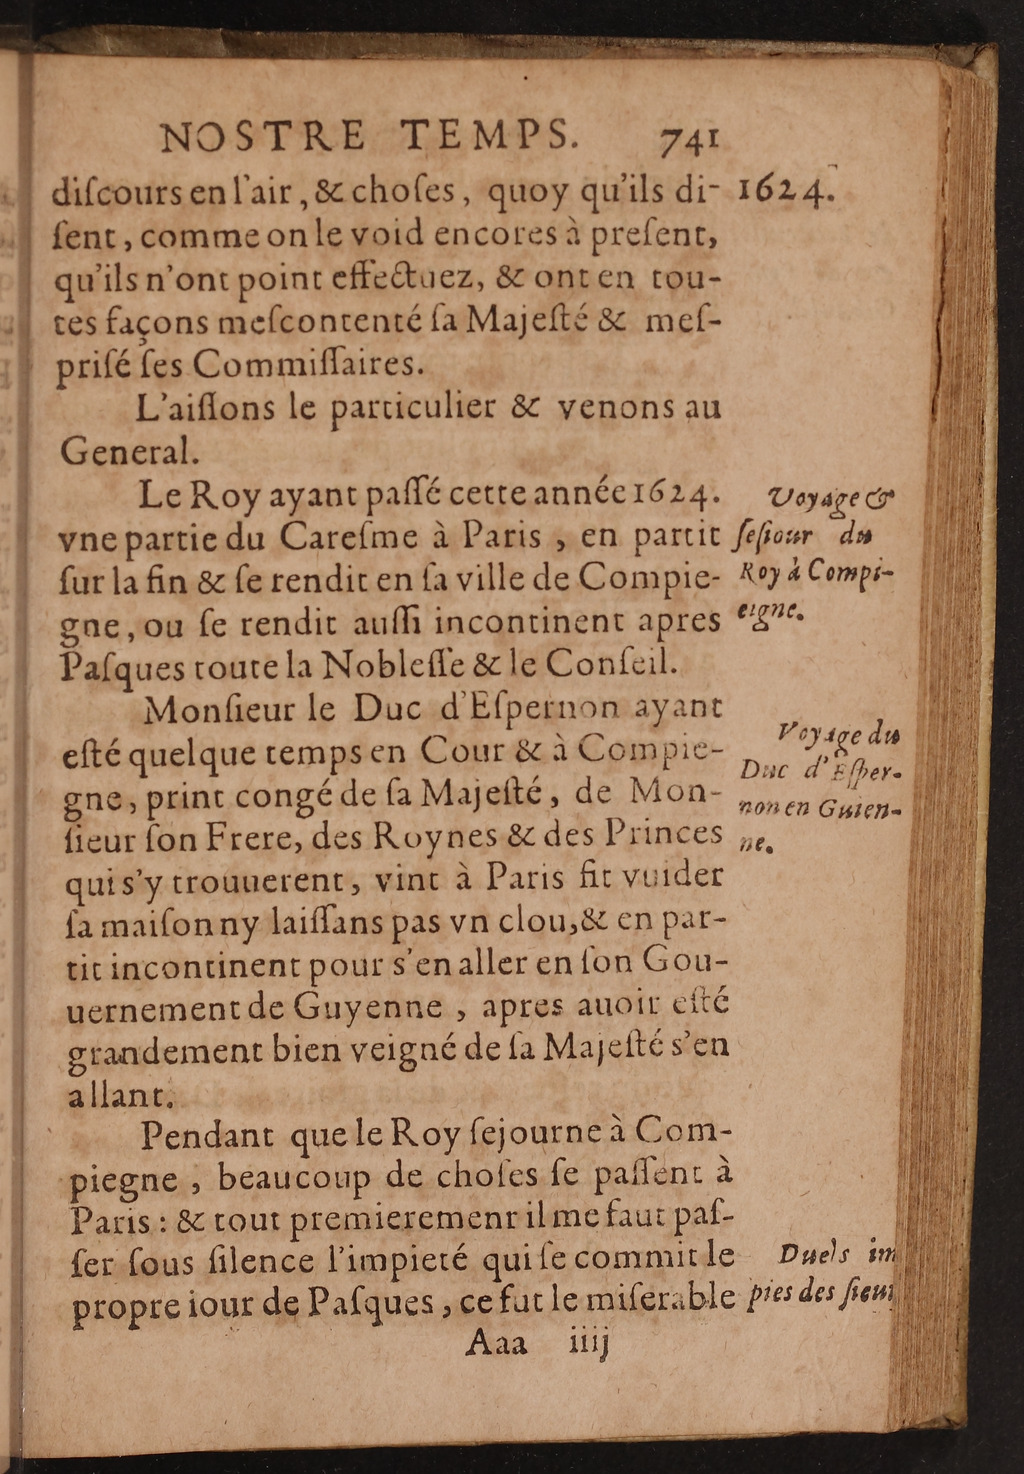 NOSTRE TEMPS. 741
diſcours en l'air, & choſes, quoy qu'ils di- 1624.
ſent, comme on le void encores à preſent,
qu'ils n'ont point effectuez, & ont en tou-
tes façons meſcontenté ſa Majeſté & meſ-
priſé ſes Commiſſaires.
L'aiſſons le particulier & venons au
General.
Le Roy ayant paſſé cette année 1624.
vne partie du Careſme à Paris, en partit
ſur la fin & ſe rendit en ſa ville de Compie-
gne, ou ſe rendit auſſi incontinent apres
Paſques toute la Nobleſſe & le Conſeil.
Voyage &
ſeſiour du
Roy à Compi-
eigne.
Monſieur le Duc d'Eſpernon ayant
eſté quelque temps en Cour & à Compie-
gne, print congé de ſa Majeſté, de Mon-
ſieur ſon Frere, des Roynes & des Princes
qui s'y trouuerent, vint à Paris fit vuider
ſa maiſon ny laiſſans pas vn clou, & en par-
tit incontinent pour s'en aller en ſon Gou-
uernement de Guyenne, apres auoir eſté
grandement bien veigné de ſa Majeſté s'en
allant.
Voyage du
Duc d'Eſper-
non en Guien-
ne.
Pendant que le Roy ſejourne à Com-
piegne, beaucoup de choſes ſe paſſent à
Paris : & tout premieremenr il me faut paſ-
ſer ſous ſilence l'impieté qui ſe commit le
propre iour de Paſques, ce fut le miſerable
Duels im
pies des ſieur
Aaa iiij